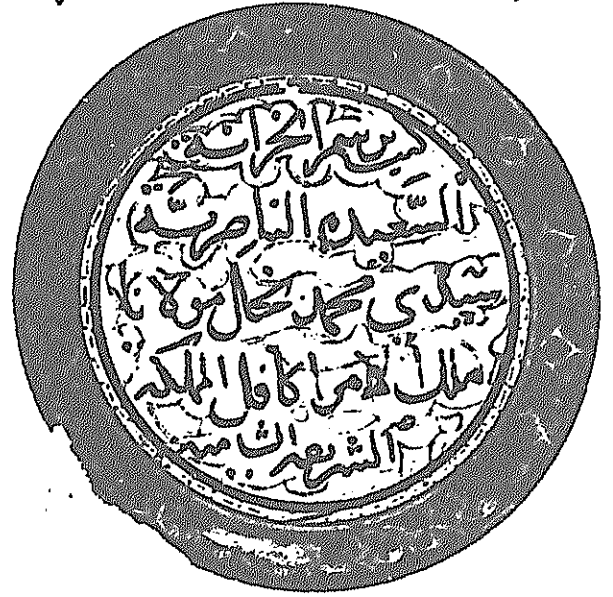 برسم الخزانة
السعيده الناصرية
سيدي محمد نجل مولانا
ملك الأمرا كافل المملكه
الشريفه الشامية